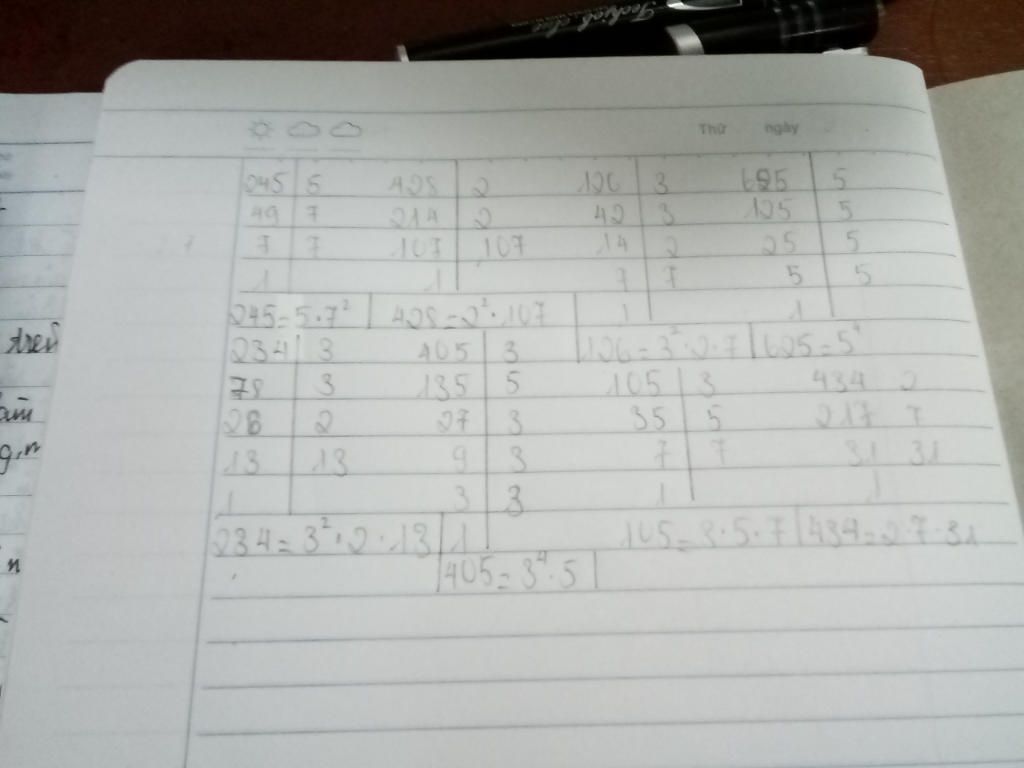 Technick
Thứ ngày
245 5 428 2 126 3 625 5
49 7 214 2 42 3 125 5
7 7 107 107 14 2 25 5
1 1 7 7 5 5
245=5·7² 428=2²·107 1 1
234 3 405 3 126=3²·2·7 625=5⁴
78 3 135 5 105 3 434 2
26 2 27 3 35 5 217 7
13 13 9 3 7 7 31 31
1 3 3 1 1
234=3²·2·13 1 105=3·5·7 434=2·7·31
405=3⁴·5